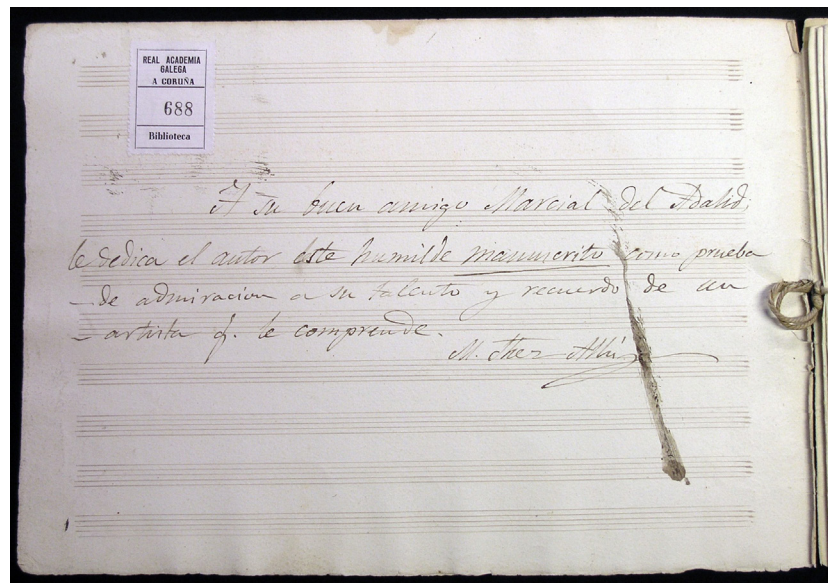 REAL ACADEMIA
GALEGA
A CORUÑA
688
Biblioteca
A su buen amigo Marcial del Adalid,
le dedica el autor este humilde manuscrito como prueba
de admiracion a su talento y recuerdo de un
artista q. le comprende.
M.